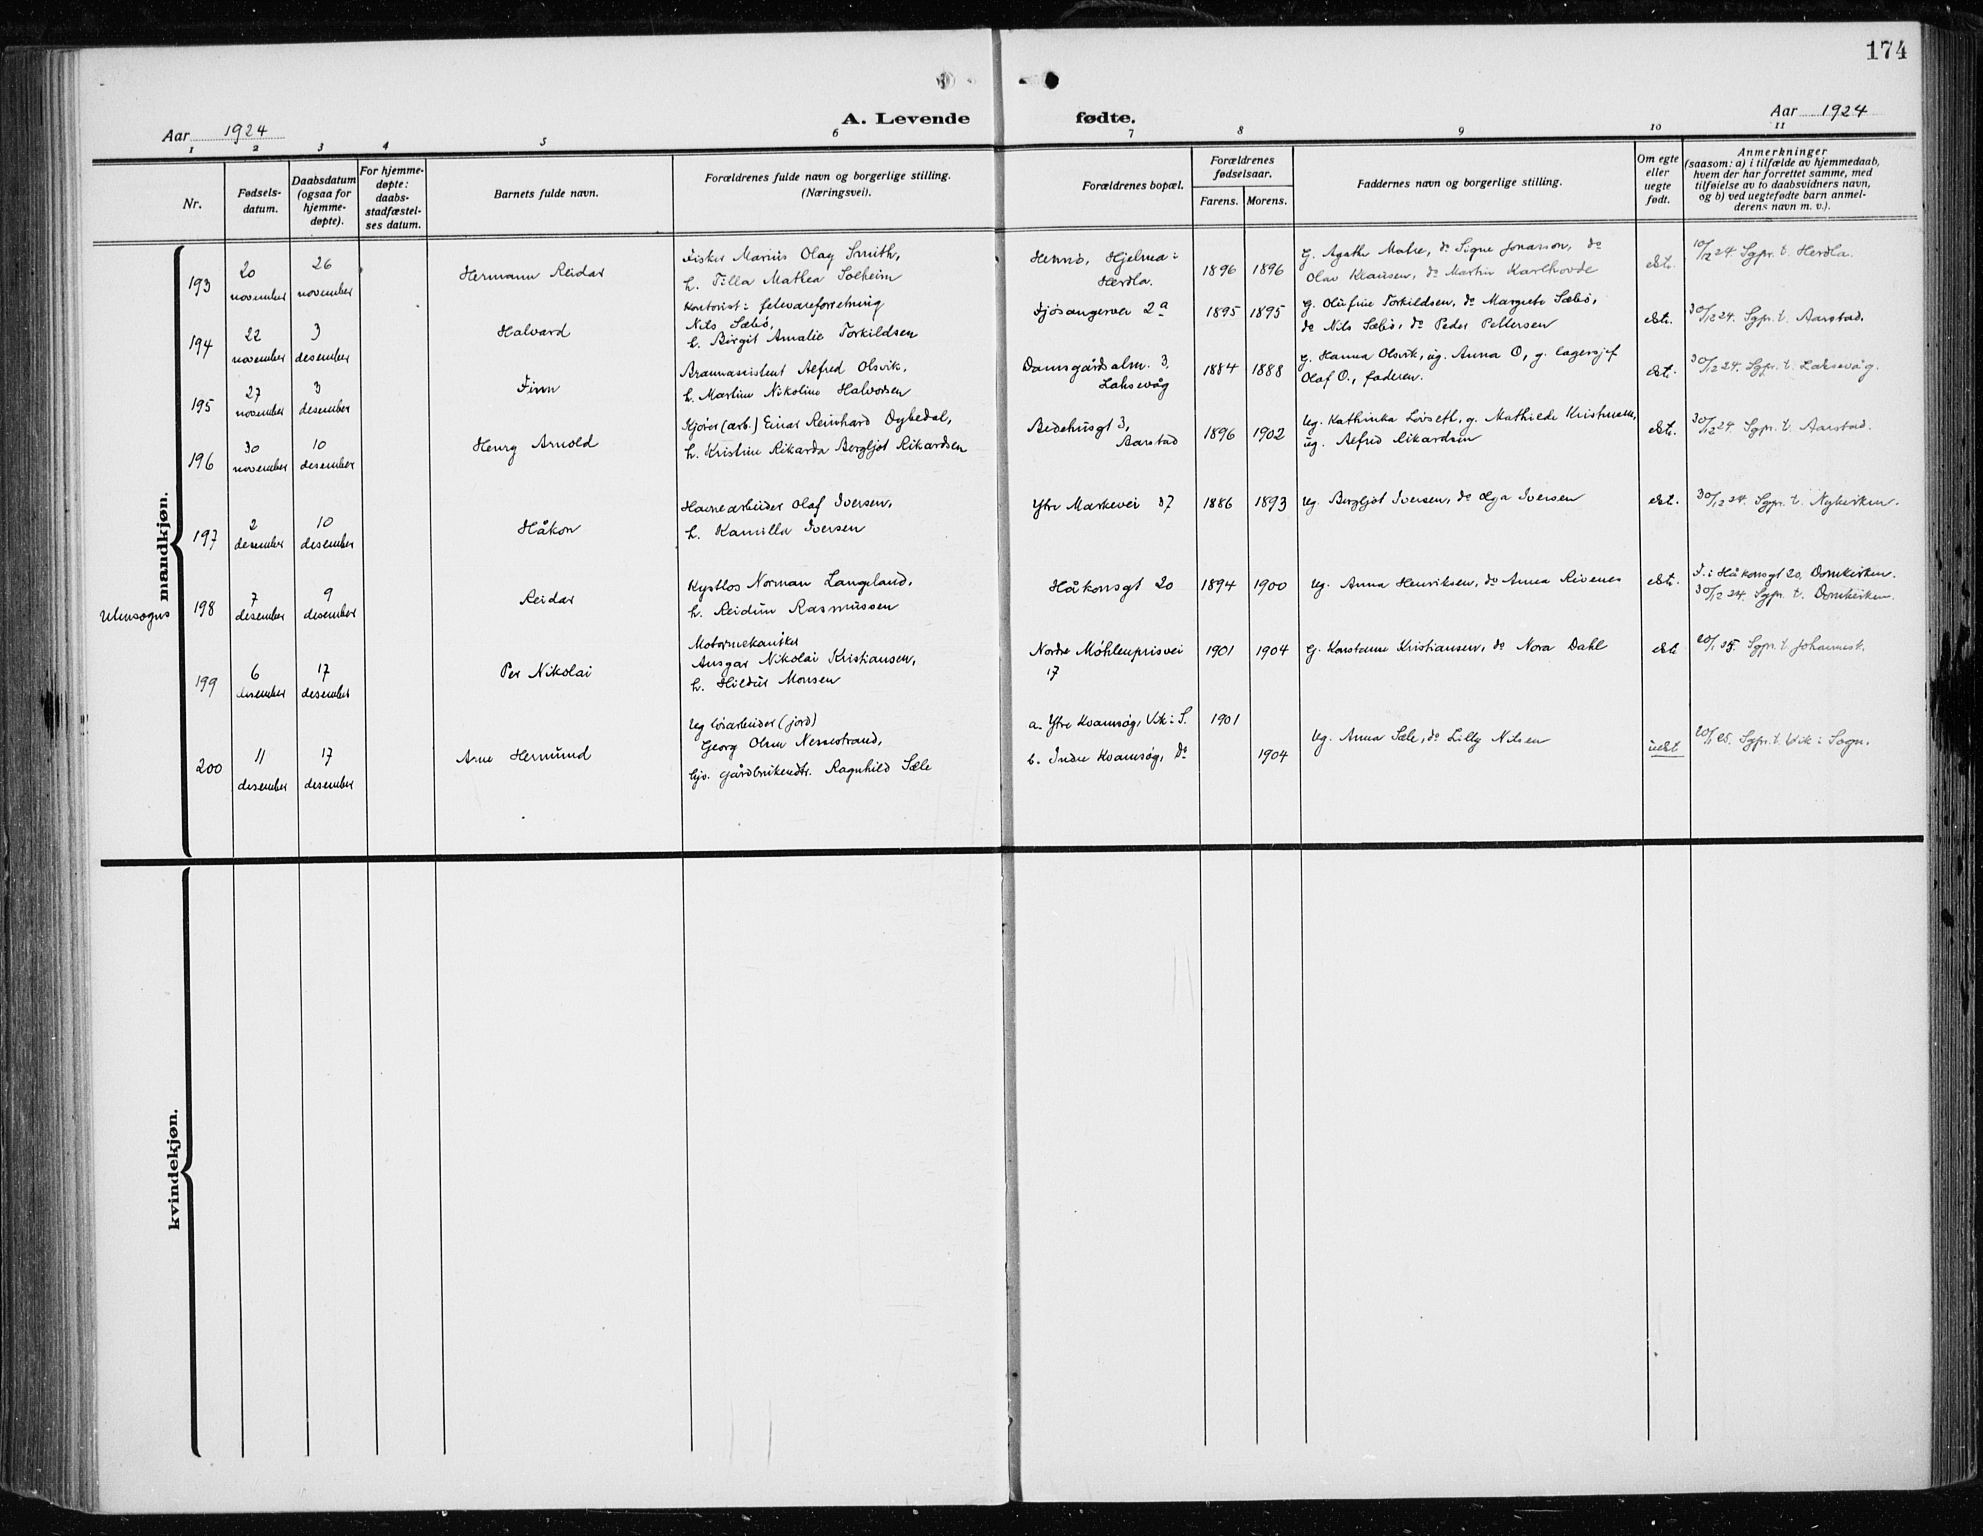 174
Aar 1924
A. Levende fødte.
Aar 1924
1 2 3 4 5 6 7 8 9 10 11
Nr.
Fødsels-
datum.
Daabsdatum
(ogsaa for
hjemme-
døpte).
For hjemme-
døpte:
daabs-
stadfæstel-
ses datum.
Barnets fulde navn.
Forældrenes fulde navn og borgerlige stilling.
(Næringsvei).
Forældrenes bopæl.
Forældrenes
fødselsaar.
Farens. Morens.
Faddernes navn og borgerlige stilling.
Om egte
eller
uegte
født.
Anmerkninger
(saasom: a) i tilfælde av hjemmedaab,
hvem der har forrettet samme, med
tilføielse av to daabsvidners navn,
og b) ved uegtefødte barn anmel-
derens navn m. v.).
mandkjøn.
Utensogns
193
20
november
26
november
Hermann Reidar
Fisker Marius Olay Smith,
h. Tilla Mathea Solheim
Hennö, Hjelma i
Herdla.
1896 1896
G. Agathe Matre, do Signe Jonasson, do
Olav Klausen, do Martin Karlhovde
ekt.
10/12 24. Sgpr. t. Herdla.
194
22
november
3
desember
Halvard
Kontorist i fetevareforretning
Nils Sæbö,
h. Birgit Amalie Torkildsen
Fjösangervei 2a
1895 1895
G. Olufine Torkildsen, do Margrete Sæbö,
do Nils Sæbö, do Peder Pettersen
ekt.
30/12 24. Sgpr. t. Aarstad.
195
27
november
3
desember
Finn
Brannassistent Alfred Olsvik,
h. Martine Nikoline Halvorsen
Damsgårdsalm. 3,
Laksevåg
1884 1888
G. Hanna Olsvik, ug. Anna O, g. lagersjef
Olaf O., faderen.
ekt.
30/12 24. Sgpr. t. Laksevåg.
196
30
november
10
desember
Henry Arnold
Kjörer (arb.) Einar Reinhard Dybedal,
h. Kristine Rikarda Bergljot Rikardsen
Bedehusgt 3,
Aarstad
1896 1902
Ug. Kathinka Lövseth, g. Mathilde
ug. Alfred Rikardsen
ekt.
30/12 24. Sgpr. t. Aarstad.
197
2
desember
10
desember
Håkon
Havnearbeider Olaf Iversen,
h. Kamilla Iversen
Ytre Markevei 37
1886 1893
Ug. Bergljot Iversen, do Olga Iversen
ekt.
30/12 24. Sgpr. t. Nykirken.
198
7
desember
9
desember
Reidar
Kystlos Norman Langeland,
h. Reidun Rasmussen
Håkonsgt 20
1894 1900
Ug. Anna Henriksen, do Anna Rivenes
ekt.
F. i Håkonsgt 20, Domkirken.
30/12 24. Sgpr. t. Domkirken.
199
6
desember
17
desember
Per Nikolai
Motormekaniker
Ansgar Nikolai Kristiansen,
h. Hildur Monsen
Nordre Möhlenprisvei
17
1901 1904
G. Konstanse Kristiansen, do Nora Dahl
ekt
20/1 25. Sgpr. t. Johannesk.
200
11
desember
17
desember
Arne Hermund
Ug lösarbeider (jord)
Georg Olsen Nessestrand,
Ugiv. gårdbrukerdtr. Ragnhild Sæle
a. Ytre Kvamsög, Vik i S.
b. Indre Kvamsög, do
1901
1904
Ug. Anna Sæle, do Lilly Nilsen
uekt
20/1 25. Sgpr. t. Vik i Sogn.
kvindekjøn.